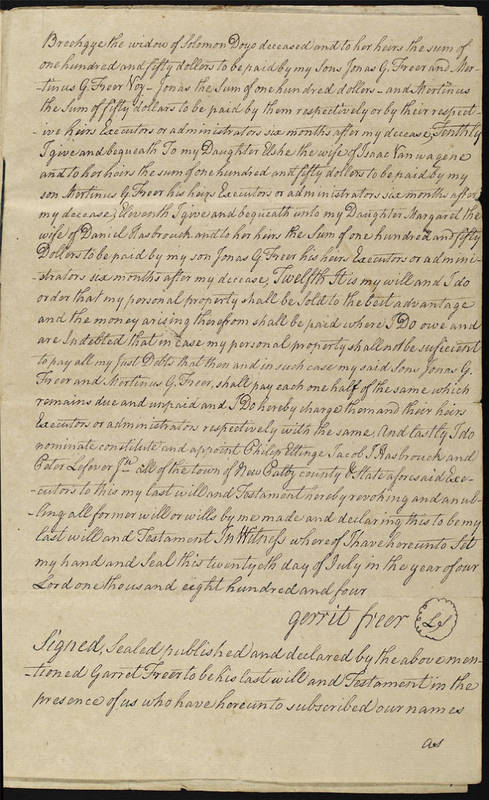 Brechgye the widow of Solomon Doyo deceased and to her heirs the sum of
one hundred and fifty dollars to be paid by my Sons Jonas G. Freer and Mer-
-tinus G. Freer Viz- Jonas the Sum of one hundred dollars - and Mertinus
the Sum of fifty dollars to be paid by them respectively or by their respect-
-ive heirs Executors or administrators six months after my decease, Tenthly
I give and bequeath To my Daughter Elshe the wife of Isaac Vanwagene
and to her heirs the sum of one hundred and fifty dollars to be paid by my
son Mertinus G. Freer his heirs Executors or administrators six months after
my decease, Eleventh I give and bequeath unto my Daughter Margared the
wife of Daniel Hasbrouck and to her heirs the Sum of one hundred and fifty
Dollars to be paid by my son Jonas G. Freer his heirs Executors or admini-
-strators six months after my decease, Twelfth It is my will and I do
order that my personal property shall be Sold to the best advantage
and the money arising therefrom shall be paid where I Do owe and
are Indebted that in case my personal property shall not be sufficient
to pay all my Just Debts that then and in such case my said Sons Jonas G.
Freer and Mertinus G. Freer, shall pay each one half of the same which
remains due and unpaid and I Do hereby charge them and their heirs
Executors or administrators respectively with the same, And lastly I do
nominate constitute and appoint Philip Eltinge Jacob J. Hasbrouck and
Peter Lefever Jr. all of the town of New Paltz county & State aforesaid Exe-
-cutors to this my last will and Testament hereby revoking and anub-
-ling all former will or wills by me made and declaring this to be my
last will and Testament In Witness where of I have hereunto Set
my hand and Seal this twentyeth day of July in the year of our
Lord one thousand eight hundred and four
gerrit freer LS
Signed, Sealed published and declared by the above men-
-tioned Garret Freer to be his last will and Testament in the
presence of us who have hereunto subscribed our names
as